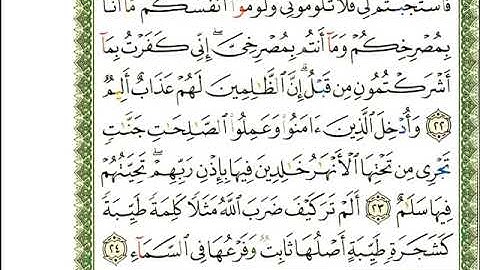 فَٱسْتَجَبْتُمْ لِى فَلَا تَلُومُونِى وَلُومُوٓا۟ أَنفُسَكُم مَّآ أَنَا۠
بِمُصْرِخِكُمْ وَمَآ أَنتُم بِمُصْرِخِىَّ ۖ إِنِّى كَفَرْتُ بِمَآ
أَشْرَكْتُمُونِ مِن قَبْلُ ۗ إِنَّ ٱلظَّـٰلِمِينَ لَهُمْ عَذَابٌ أَلِيمٌ
﴿٢٢﴾ وَأُدْخِلَ ٱلَّذِينَ ءَامَنُوا۟ وَعَمِلُوا۟ ٱلصَّـٰلِحَـٰتِ جَنَّـٰتٍ
تَجْرِى مِن تَحْتِهَا ٱلْأَنْهَـٰرُ خَـٰلِدِينَ فِيهَا بِإِذْنِ رَبِّهِمْ ۖ تَحِيَّتُهُمْ
فِيهَا سَلَـٰمٌ ﴿٢٣﴾ أَلَمْ تَرَ كَيْفَ ضَرَبَ ٱللَّهُ مَثَلًا كَلِمَةً طَيِّبَةً
كَشَجَرَةٍ طَيِّبَةٍ أَصْلُهَا ثَابِتٌ وَفَرْعُهَا فِى ٱلسَّمَآءِ ﴿٢٤﴾